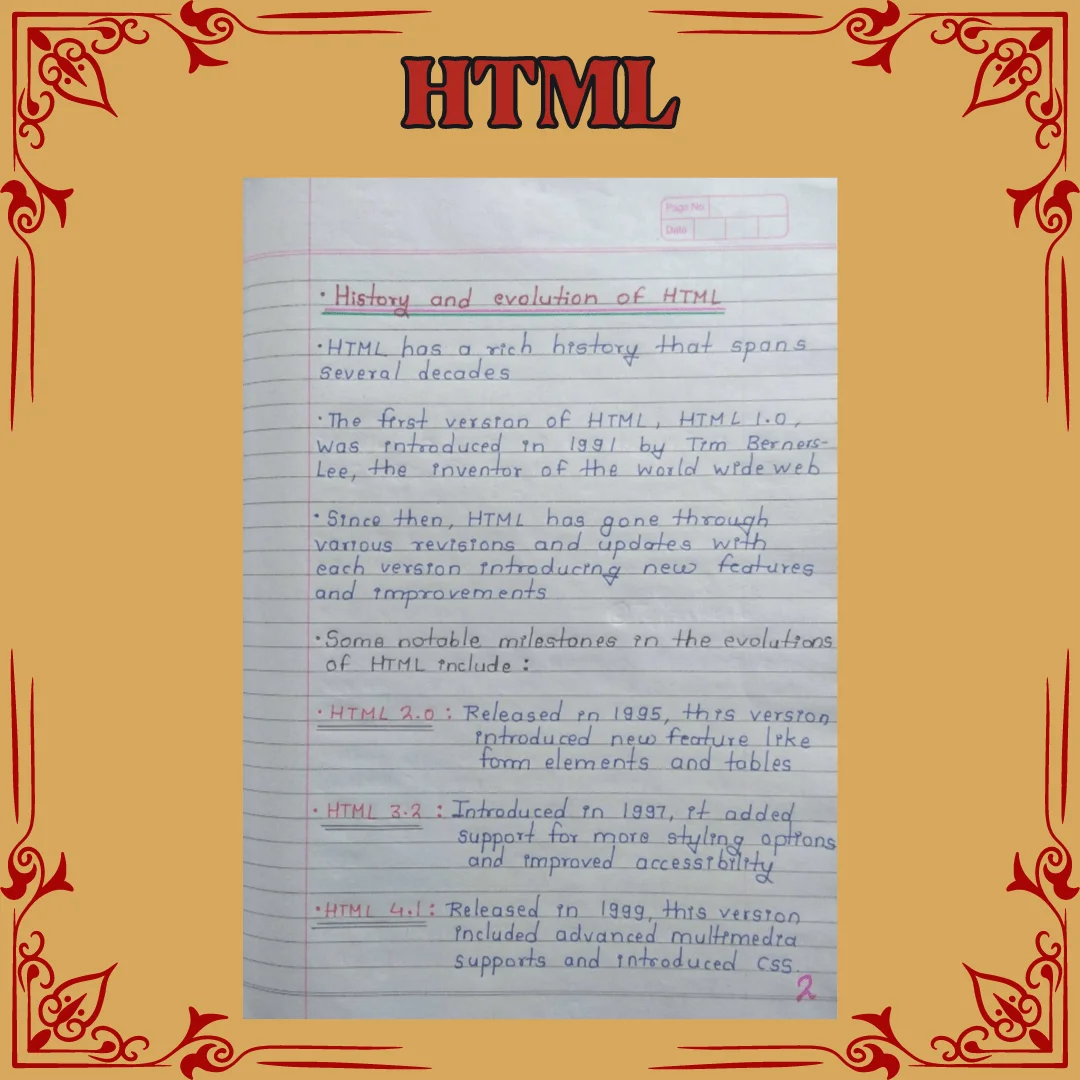 HTML
Page No
Date
• History and evolution of HTML
• HTML has a rich history that spans
several decades
• The first version of HTML, HTML 1.0,
was introduced in 1991 by Tim Berners-
Lee, the inventor of the world wide web
• Since then, HTML has gone through
various revisions and updates with
each version introducing new features
and improvements
• Some notable milestones in the evolutions
of HTML include :
• HTML 2.0 : Released in 1995, this version
introduced new feature like
form elements and tables
• HTML 3.2 : Introduced in 1997, it added
support for more styling options
and improved accessibility
• HTML 4.1 : Released in 1999, this version
included advanced multimedia
supports and introduced CSS.
2